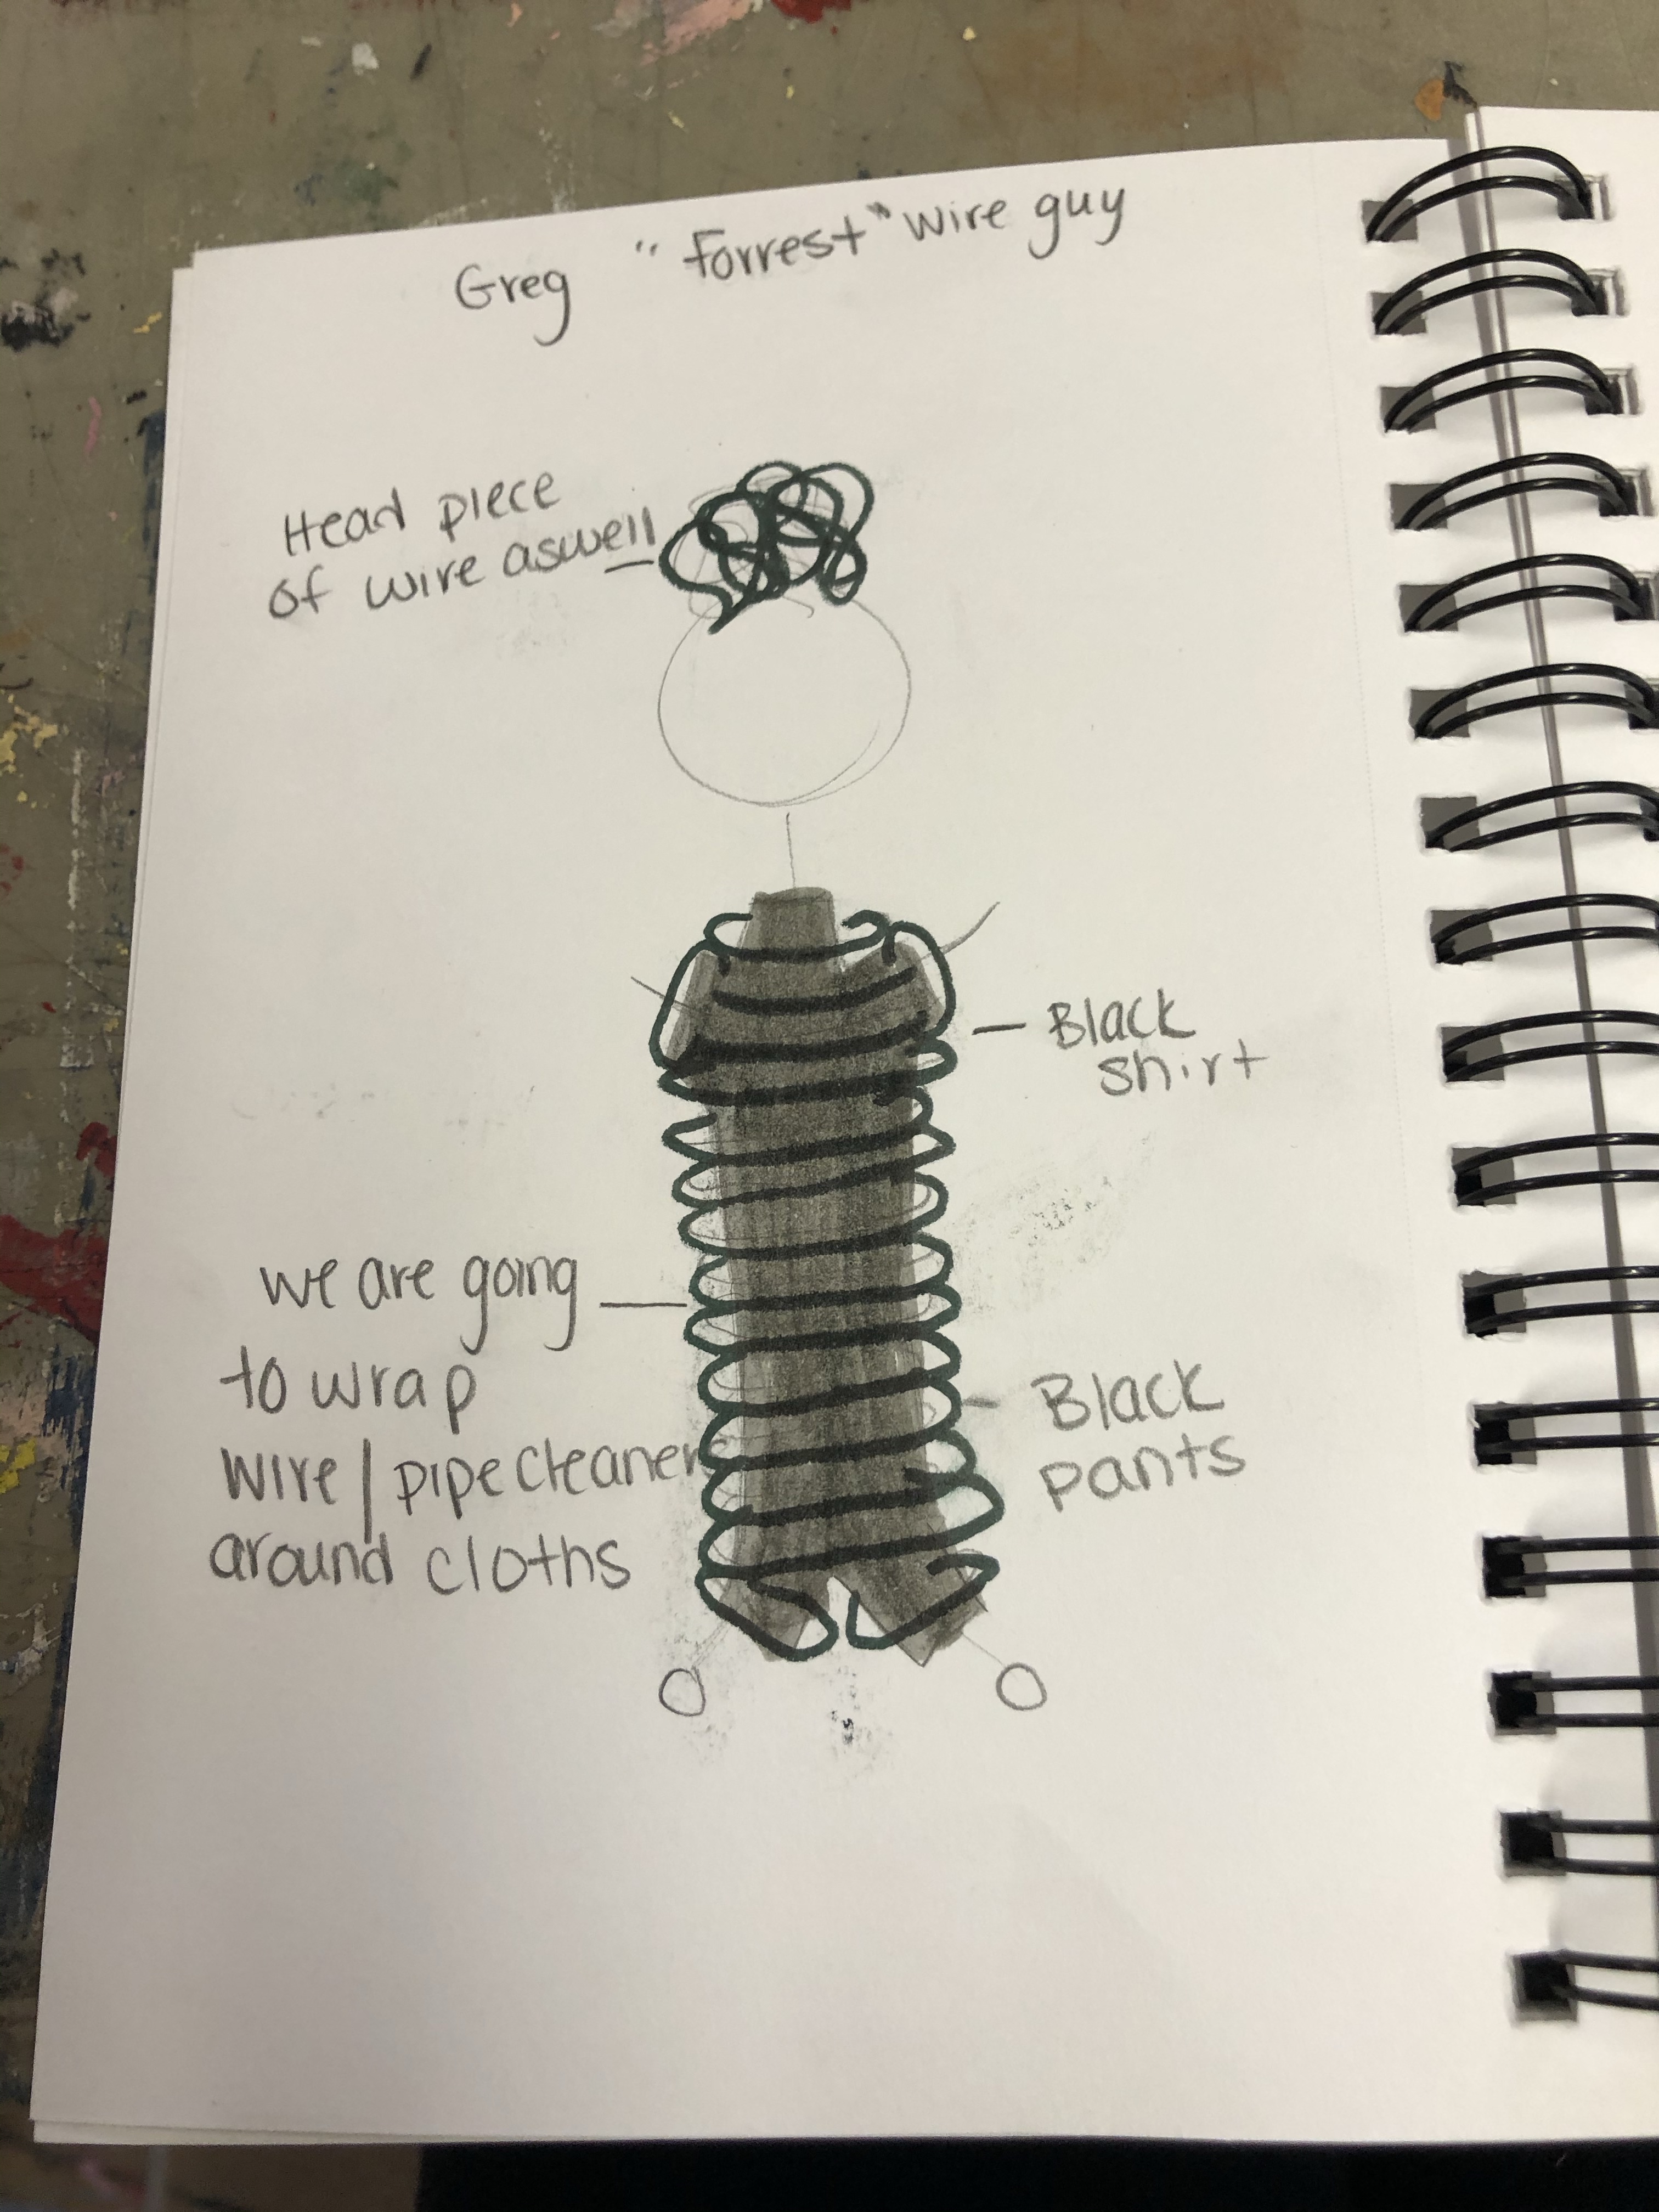 Greg "Forrest" wire guy
Head piece
of wire aswell
Black
shirt
we are going
to wrap
wire/pipecleaners
around cloths
Black
pants